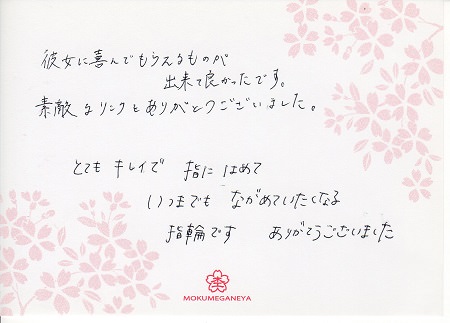 彼女に喜んでもらえるものが
出来て良かったです。
素敵なリングとありがとうございました。
とても キレイで 指にはめて
いつまでも ながめていたくなる
指輪です ありがとうございました
MOKUMEGANEYA